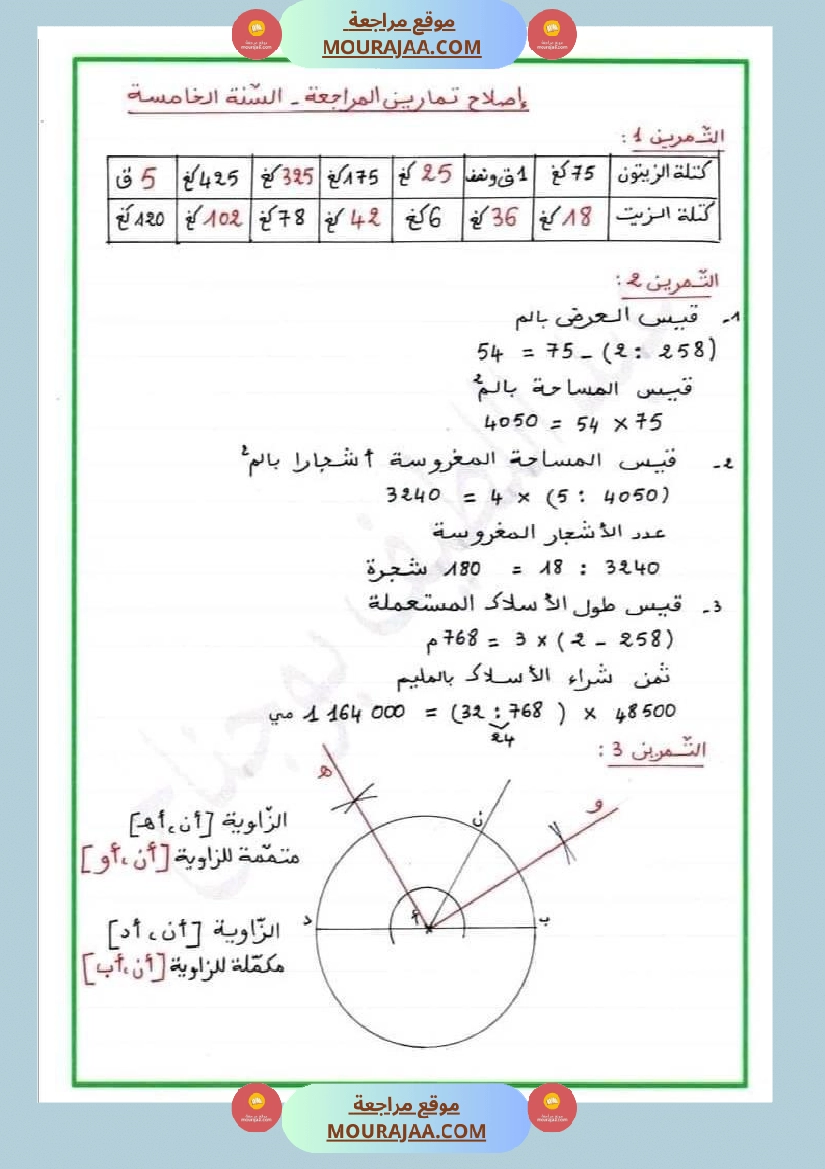 موقع مراجعة
MOURAJAA.COM
إصلاح تمارين المراجعة - السّنة الخامسة
التّمرين 1 :
كتلة الزيتون 75 كغ 1 ق ونصف 25 كغ 175 كغ 325 كغ 425 كغ 5 ق
كتلة الزيت 18 كغ 36 كغ 6 كغ 42 كغ 78 كغ 102 كغ 120 كغ
التّمرين 2 :
1- قيس العرض بالم
(258 : 2) - 75 = 54
قيس المساحة بالم²
75 × 54 = 4050
2- قيس المساحة المغروسة أشجارا بالم²
(4050 : 5) × 4 = 3240
عدد الأشجار المغروسة
3240 : 18 = 180 شجرة
3- قيس طول الأسلاك المستعملة
(258 - 2) × 3 = 768 م
ثمن شراء الأسلاك بالمليم
48500 × (768 : 32) = 1 164 000 مي
24
التّمرين 3 :
ه
و
ن
الزّاوية [أن، أه]
متمّمة للزاوية [أن، أو]
أ
د
ب
الزّاوية [أن، أد]
مكمّلة للزاوية [أن، أب]
موقع مراجعة
MOURAJAA.COM